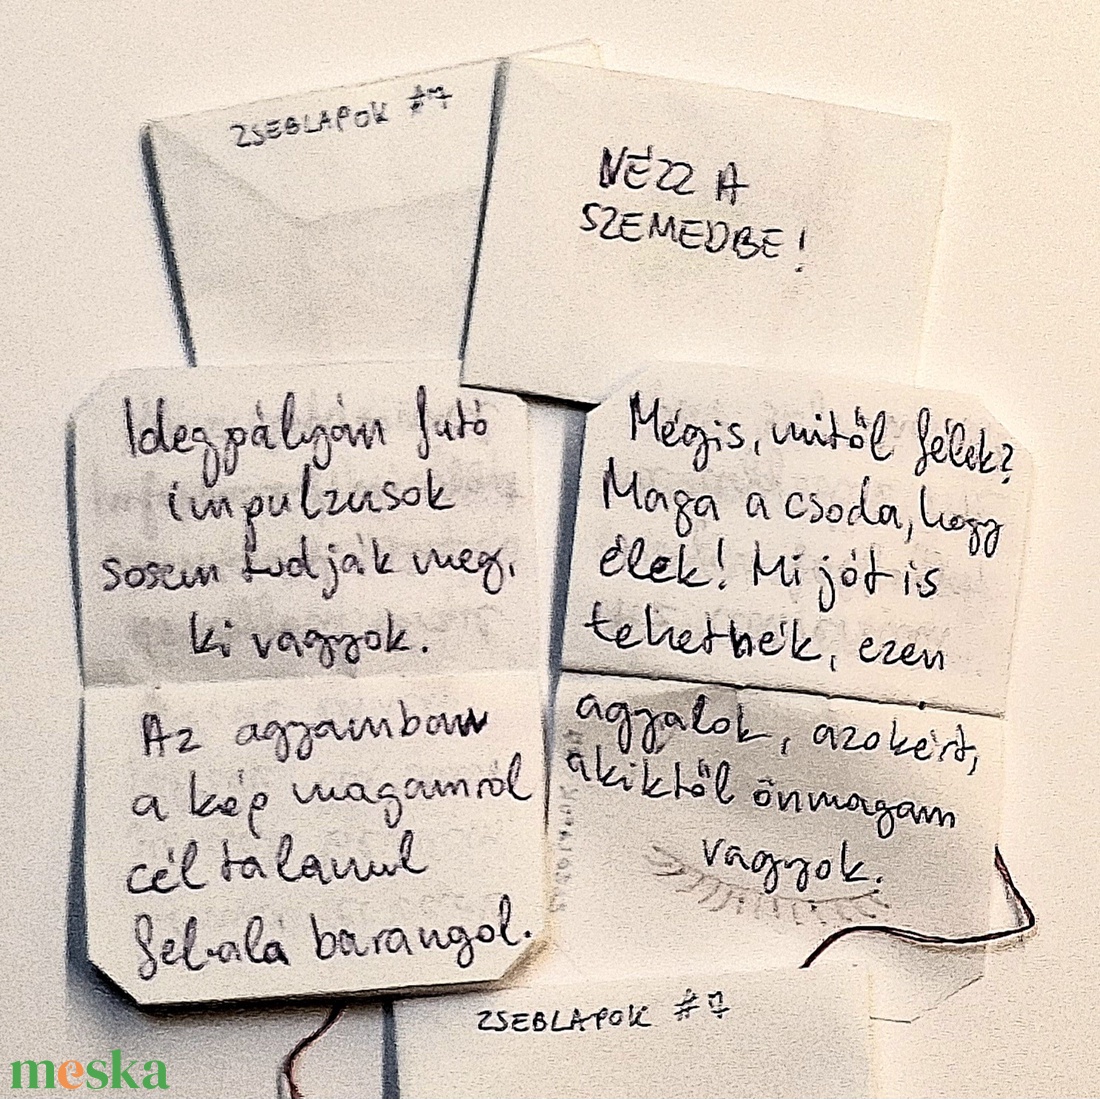 ZSEBLAPOK #7
NÉZZ A
SZEMEDBE!
Idegpályám futó
impulzusok
sosem tudják meg,
ki vagyok.
Az agyamban
a kép magamról
céltalanul
fel-alá barangol.
Mégis, mitől félek?
Maga a csoda, hogy
élek! Mi jót is
tehetnék, ezen
agyalok, azokért,
akiktől önmagam
vagyok.
ZSEBLAPOK #7
meska